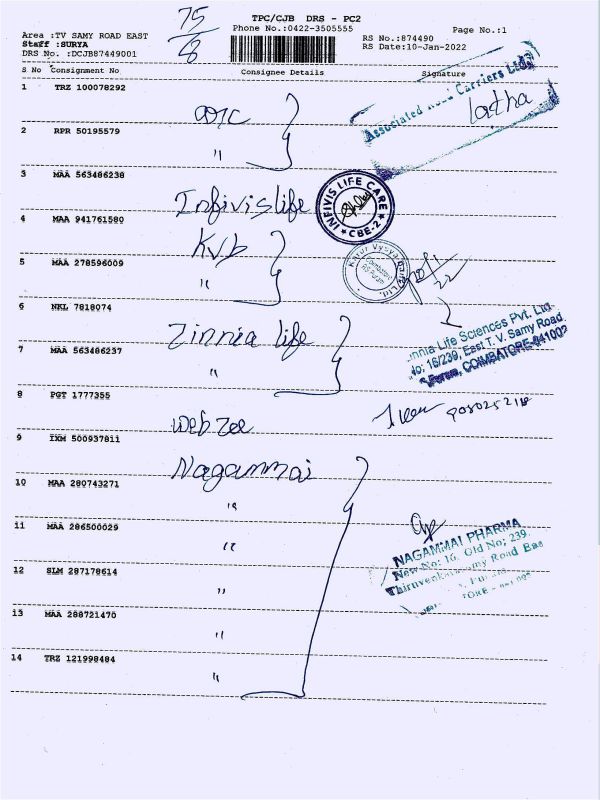 75/8
TPC/CJB DRS - PC2
Phone No.:0422-3505555
Page No.:1
Area :TV SAMY ROAD EAST
Staff :SURYA
DRS No. :DCJB87449001
RS No.:874490
RS Date:10-Jan-2022
S No Consignment No Consignee Details Signature
1 TRZ 100078292
Associated Road Carriers Ltd.
latha
2 RPR 50195579 "
3 MAA 563486238 Infivislife
INFIVIS LIFE CARE
* CBE-2 *
4 MAA 941761580 Kvb
5 MAA 278596009 "
6 NKL 7818074 Zinnia life
nnia Life Sciences Pvt. Ltd.
No: 16/239, East T.V. Samy Road,
COIMBATORE-641002
7 MAA 563486237 "
8 PGT 1777355 Webzee
9 IXM 500937811 Nagammai
10 MAA 280743271 "
11 MAA 286500029 "
NAGAMMAI PHARMA
New No: 16, Old No: 239,
Road Eas
12 SLM 287178614 "
13 MAA 288721470 "
14 TRZ 121998484 "